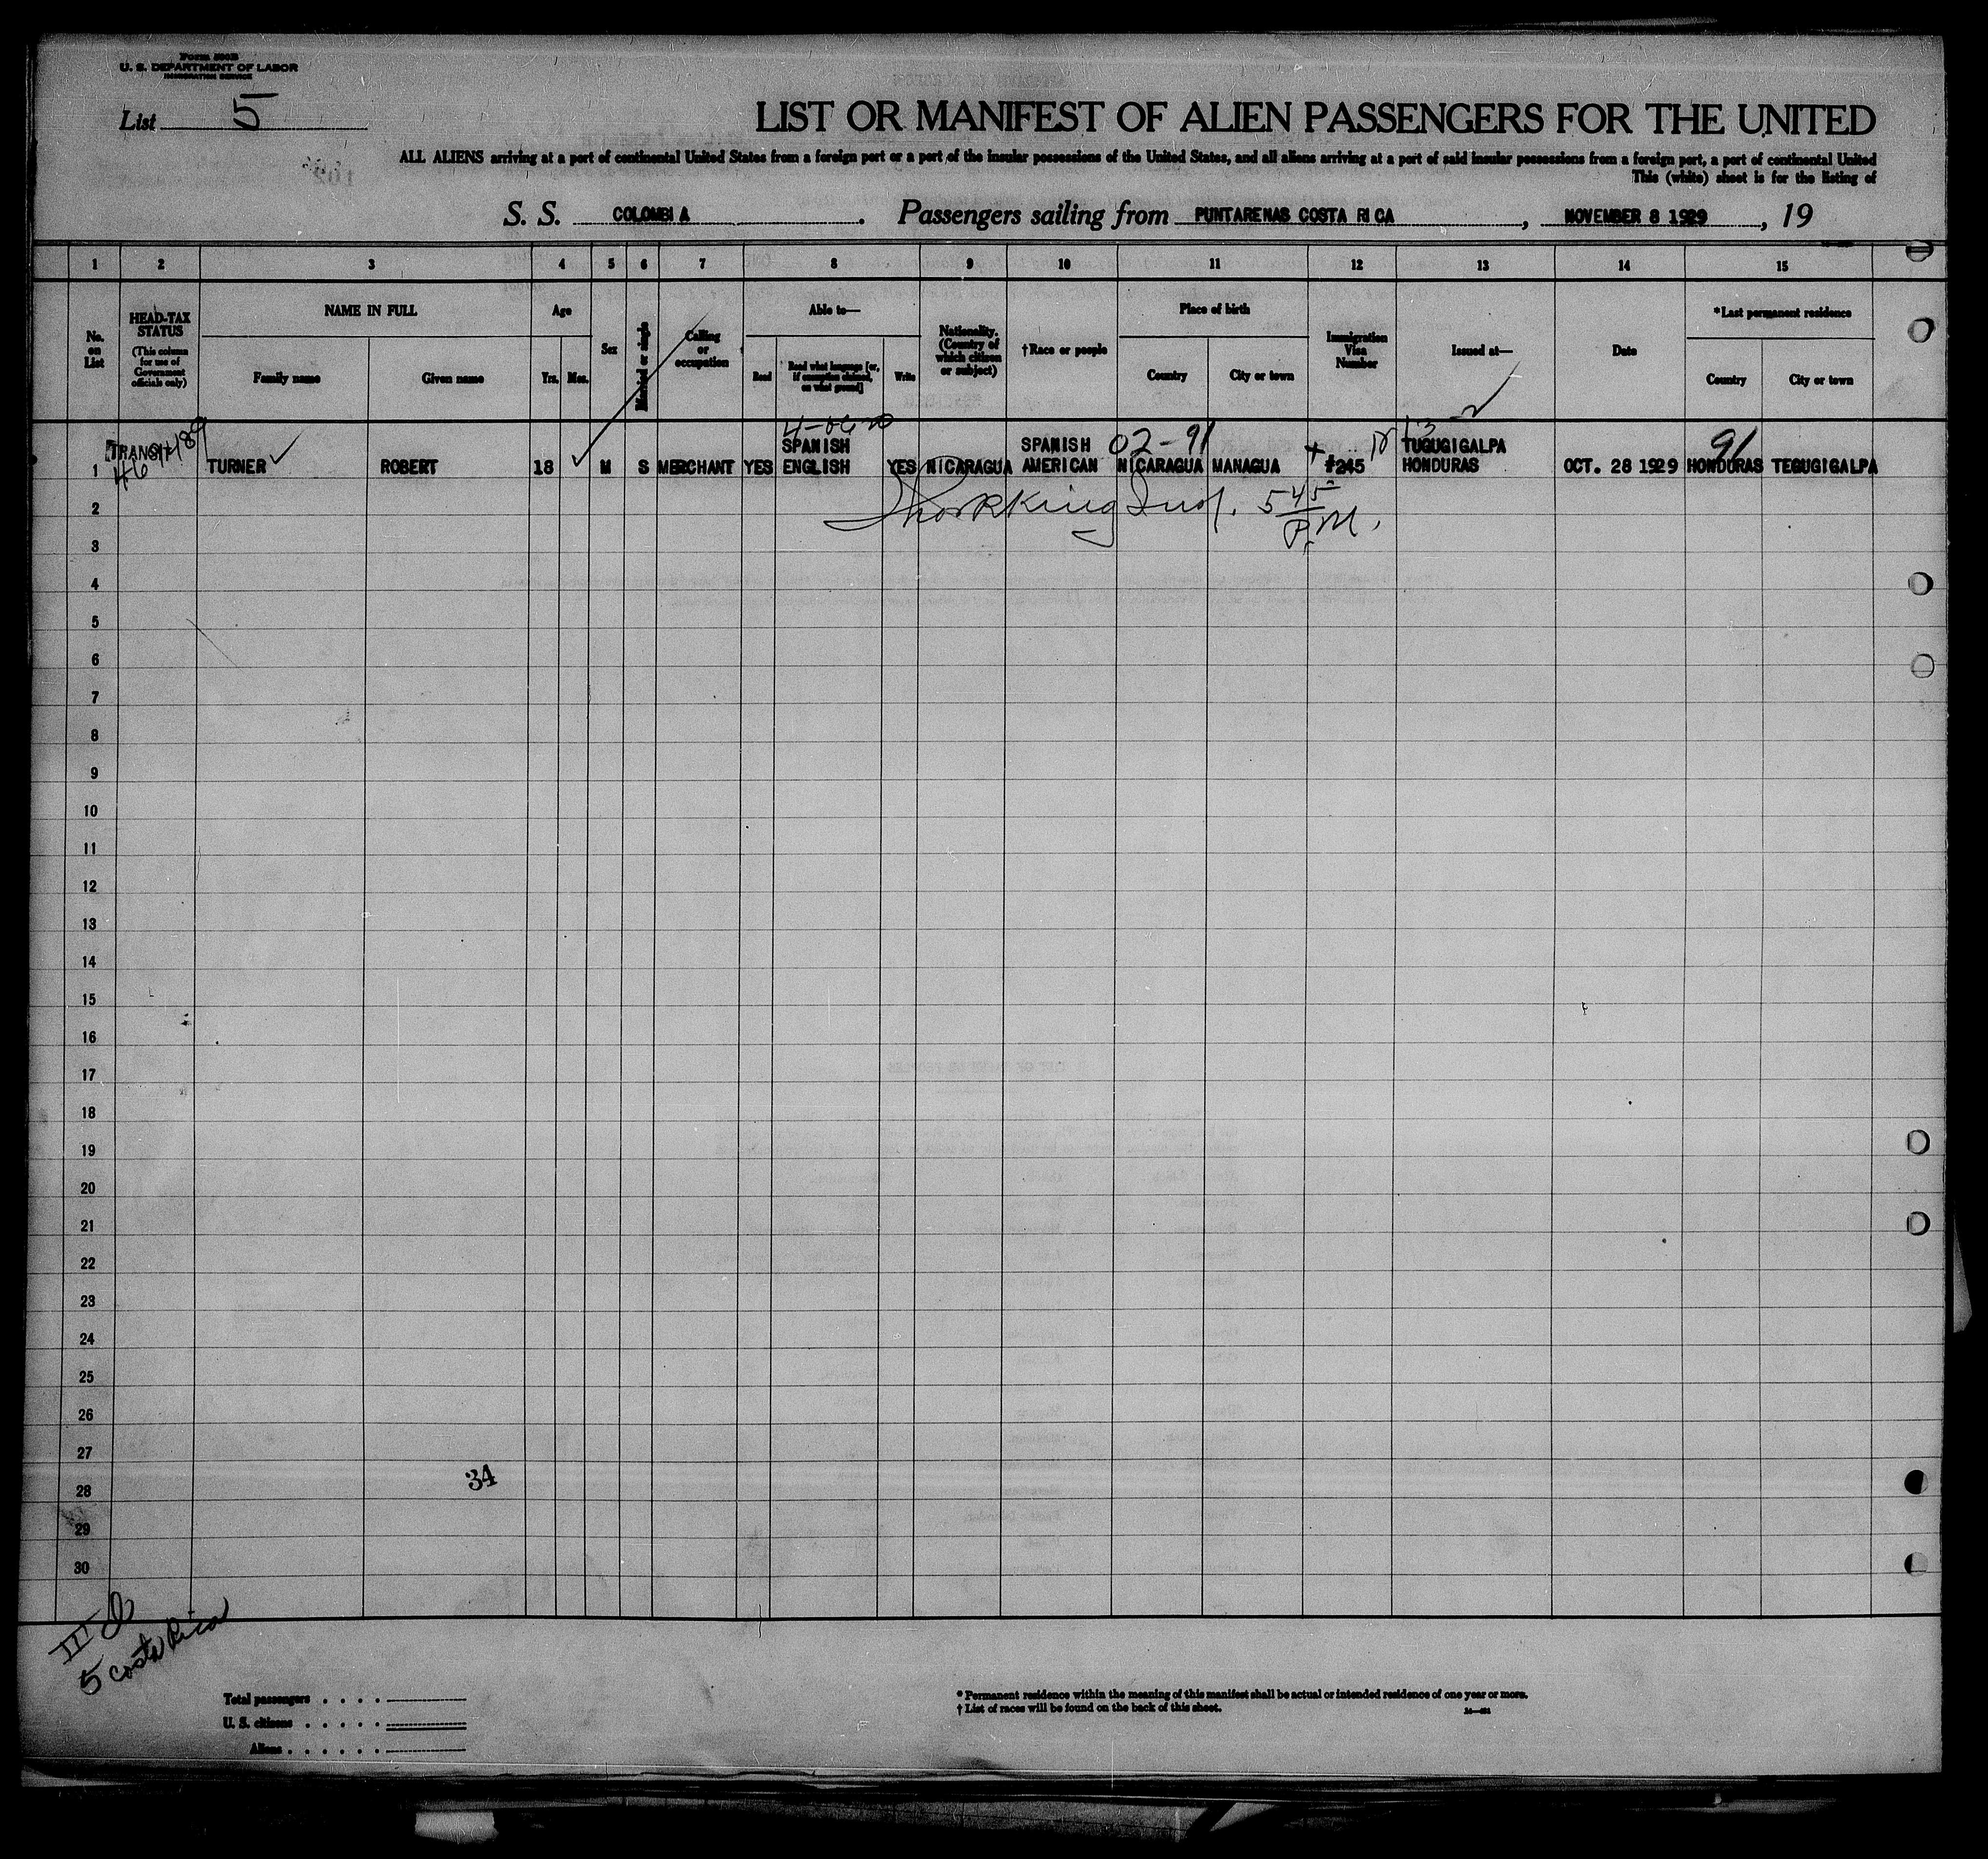 Form 500B
U. S. DEPARTMENT OF LABOR
IMMIGRATION SERVICE
List 5
LIST OR MANIFEST OF ALIEN PASSENGERS FOR THE UNITED
ALL ALIENS arriving at a port of continental United States from a foreign port or a port of the insular possessions of the United States, and all aliens arriving at a port of said insular possessions from a foreign port, a port of continental United
This (white) sheet is for the listing of
S. S. COLOMBIA. Passengers sailing from PUNTARENAS COSTA RICA, NOVEMBER 8 1929, 19
1 2 3 4 5 6 7 8 9 10 11 12 13 14 15
No. on List
HEAD-TAX STATUS
(This column for use of Government officials only)
NAME IN FULL
Family name Given name
Age
Yrs. Mos.
Sex
Married or single
Calling or occupation
Able to—
Read Read what language [or, if exemption claimed, on what ground] Write
Nationality. (Country of which citizen or subject)
†Race or people
Place of birth
Country City or town
Immigration Visa Number
Issued at—
Date
*Last permanent residence
Country City or town
02-91 13 91
TRANSIT SPANISH SPANISH TUGUGIGALPA
1 TURNER ROBERT 18 M S MERCHANT YES ENGLISH YES NICARAGUA AMERICAN NICARAGUA MANAGUA #245 HONDURAS OCT. 28 1929 HONDURAS TEGUGIGALPA
2
3
4
5
6
7
8
9
10
11
12
13
14
15
16
17
18
19
20
21
22
23
24
25
26
27
34
28
29
30
5 Costa Rica
Total passengers
U. S. citizens
Aliens
* Permanent residence within the meaning of this manifest shall be actual or intended residence of one year or more.
† List of races will be found on the back of this sheet.